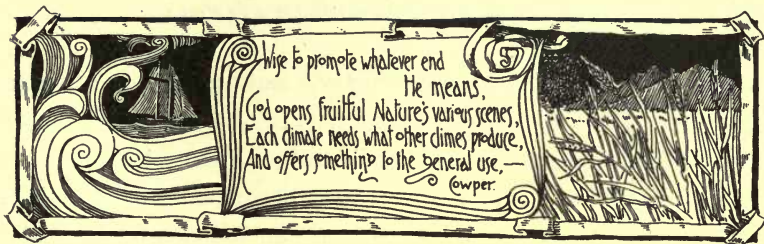 Wise to promote whatever end
He means,
God opens fruitful Nature's various scenes,
Each climate needs what other climes produce,
And offers something to the general use,—
Cowper.